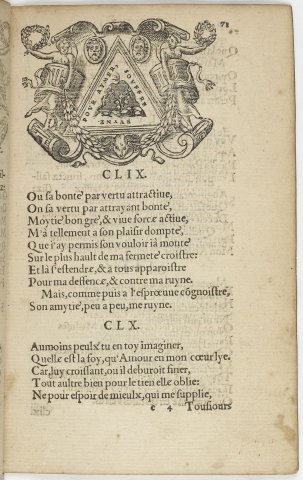 71
POVR AYMER, SOVFFRE RVYNE
CLIX.
Ou sa bonté par vertu attractiue,
Ou sa vertu par attrayant bonté,
Moytié bon gré, & viue force actiue,
M'à tellement a son plaisir dompté,
Que i'ay permis son vouloir ià monté
Sur le plus hault de ma fermeté croistre:
Et là s'estendre, & a tous apparoistre
Pour ma deffence, & contre ma ruyne.
Mais, comme puis a l'espreuue congnoistre,
Son amytié, peu a peu, me ruyne.
CLX.
Aumoins peulx tu en toy imaginer,
Quelle est la foy, qu'Amour en mon cœur lye.
Car, luy croissant, ou il debuoit finer,
Tout aultre bien pour le tien elle oblie:
Ne pour espoir de mieulx, qui me supplie,
e 4 Tousiours